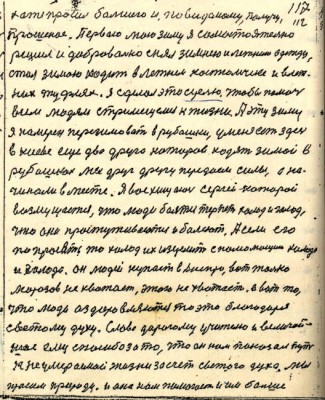 117
112
Прощение. Первою мою зиму я самостоятельно
решил и добровольно снял зимнюю и летнюю одежду,
стал зимою ходить в летнем костюмчике и в лет-
них туфлях. я сделал это смело, чтобы помочь
всем людям стремящемся к жизни. А эту зиму
я намерен перезимовать в рубашки, у меня есть здес
в киеве еще два друга которые ходят зимой в
рубашках мы друг другу передаем силы, а на-
чинали вместе. Я восхищаюс сергей которой
возмущается, что люди боятся терпеть холод и голод,
что они простуживаются и болеют. А если его
попросить то холод их изцелит с помощию холода
и голода. он людей купает в Днепре, вот только
морозов не хватает, этого не хватает. а вот то,
что люди оздоровляются то это благодаря
святому духу. Слава дорогому учителю и величай-
шее ему спасибо за то, что он нам показал путь
к неумераемой жизни за счет святого духа, мы
просим природу. и она нам помогает и им больше